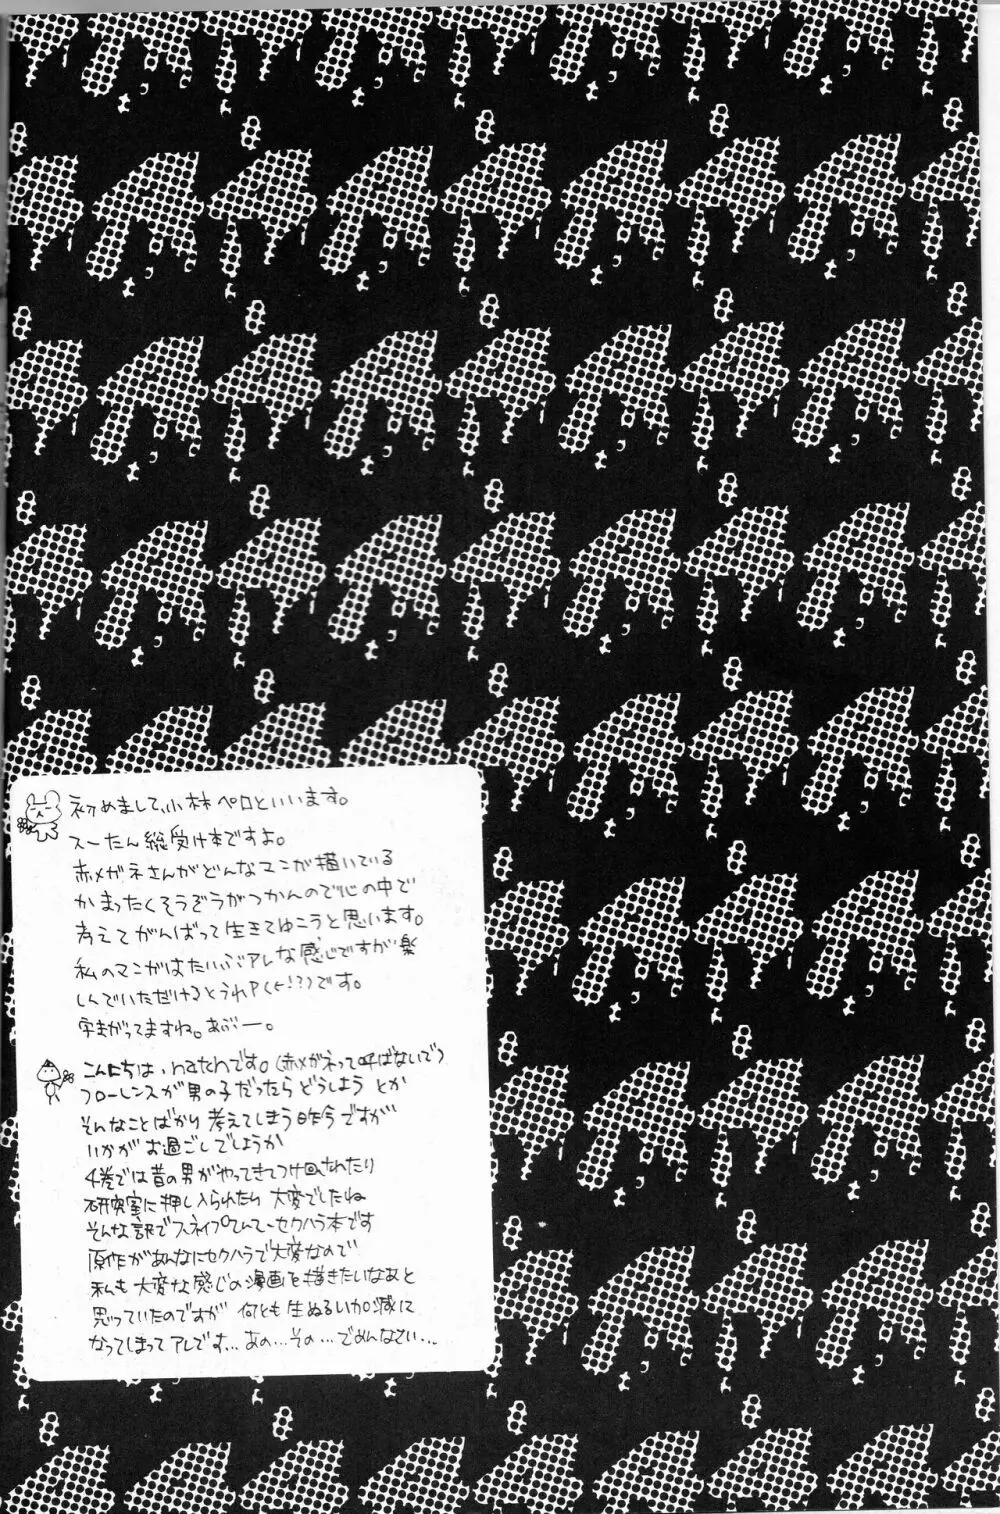 初めまして、小林ペロといいます。
スーたん総受け本ですよ。
赤メガネさんがどんなマンガ描いている
かまったくそうぞうがつかんので心の中で
考えてがんばって生きてゆこうと思います。
私のマンガはたいぶアレな感じですが楽
しんでいただけるとうれP(←!?)です。
字まがってますね。あぶー。
こんにちは、natnです。(赤メガネって呼ばないで)
フローレンスが男の子だったらどうしよう とか
そんなことばかり考えてしまう昨今ですが
いかがお過ごしでしょうか
4巻では昔の男がやってきてつけ回されたり
研究室に押し入られたり大変でしたね
そんな訳でスネイプてんてーセクハラ本です
原作があんなにセクハラで大変なので
私も大変な感じの漫画を描きたいなあと
思っていたのですが 何とも生ぬるい加減に
なってしまってアレです… あの…その…ごめんなさい…